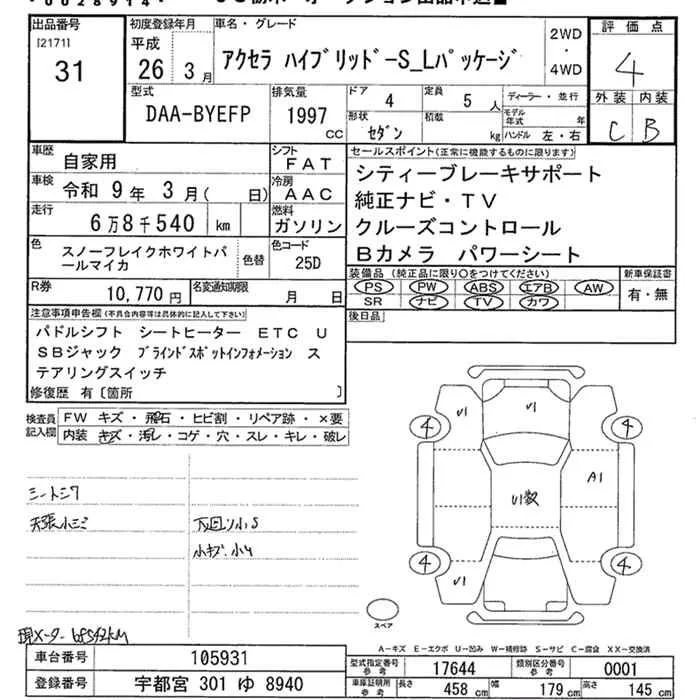 0028914
出品番号
[2171]
31
初度登録年月
平成
26 3月
車名・グレード
アクセラ ハイブリッド-S_Lパッケージ
2WD
・
4WD
評価点
4
外装 内装
C B
型式
DAA-BYEFP
排気量
1997
CC
ドア 4
定員 5 人
形状 セダン
積載 kg
ディーラー・並行
モデル年式 年
ハンドル 左・右
車歴 自家用
シフト FAT
車検 令和 9年 3月( 日)
冷房 AAC
走行 6万8千540 km
燃料 ガソリン
色 スノーフレイクホワイトパールマイカ
色替
色コード 25D
R券 10,770円
名変通知期限 月 日
セールスポイント(正常に機能するものに限ります)
シティーブレーキサポート
純正ナビ・TV
クルーズコントロール
Bカメラ パワーシート
装備品(純正品に限り〇をつけてください)
PS PW ABS エアB AW
SR ナビ TV カワ
新車保証書
有・無
後日品
注意事項申告欄(不具合内容等は具体的に記入して下さい)
パドルシフト シートヒーター ETC U
SBジャック ブラインドスポットインフォメーション ス
テアリングスイッチ
修復歴 有〔箇所 〕
検査員記入欄
FW キズ・飛石・ヒビ割・リペア跡・×要
内装 キズ・汚レ・コゲ・穴・スレ・キレ・破レ
シートシワ
天張小シミ
下回り小S
小キズ.小U
現メーター 68542KM
U1
U1
4
4
A1
U1数
4
4
U1
スペア
A-キズ E-エクボ U-凹み W-補修跡 S-サビ C-腐食 XX-交換済
車台番号 105931
登録番号 宇都宮 301 ゆ 8940
型式指定番号 参考 17644
類別区分番号 参考 0001
車庫証明用 参考 長さ 458 cm 幅 179 cm 高さ 145 cm